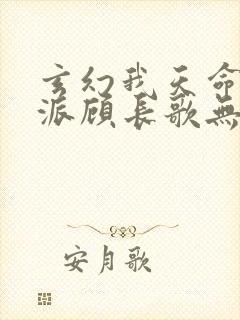 玄幻我天命
派顾长歌無
安月歌